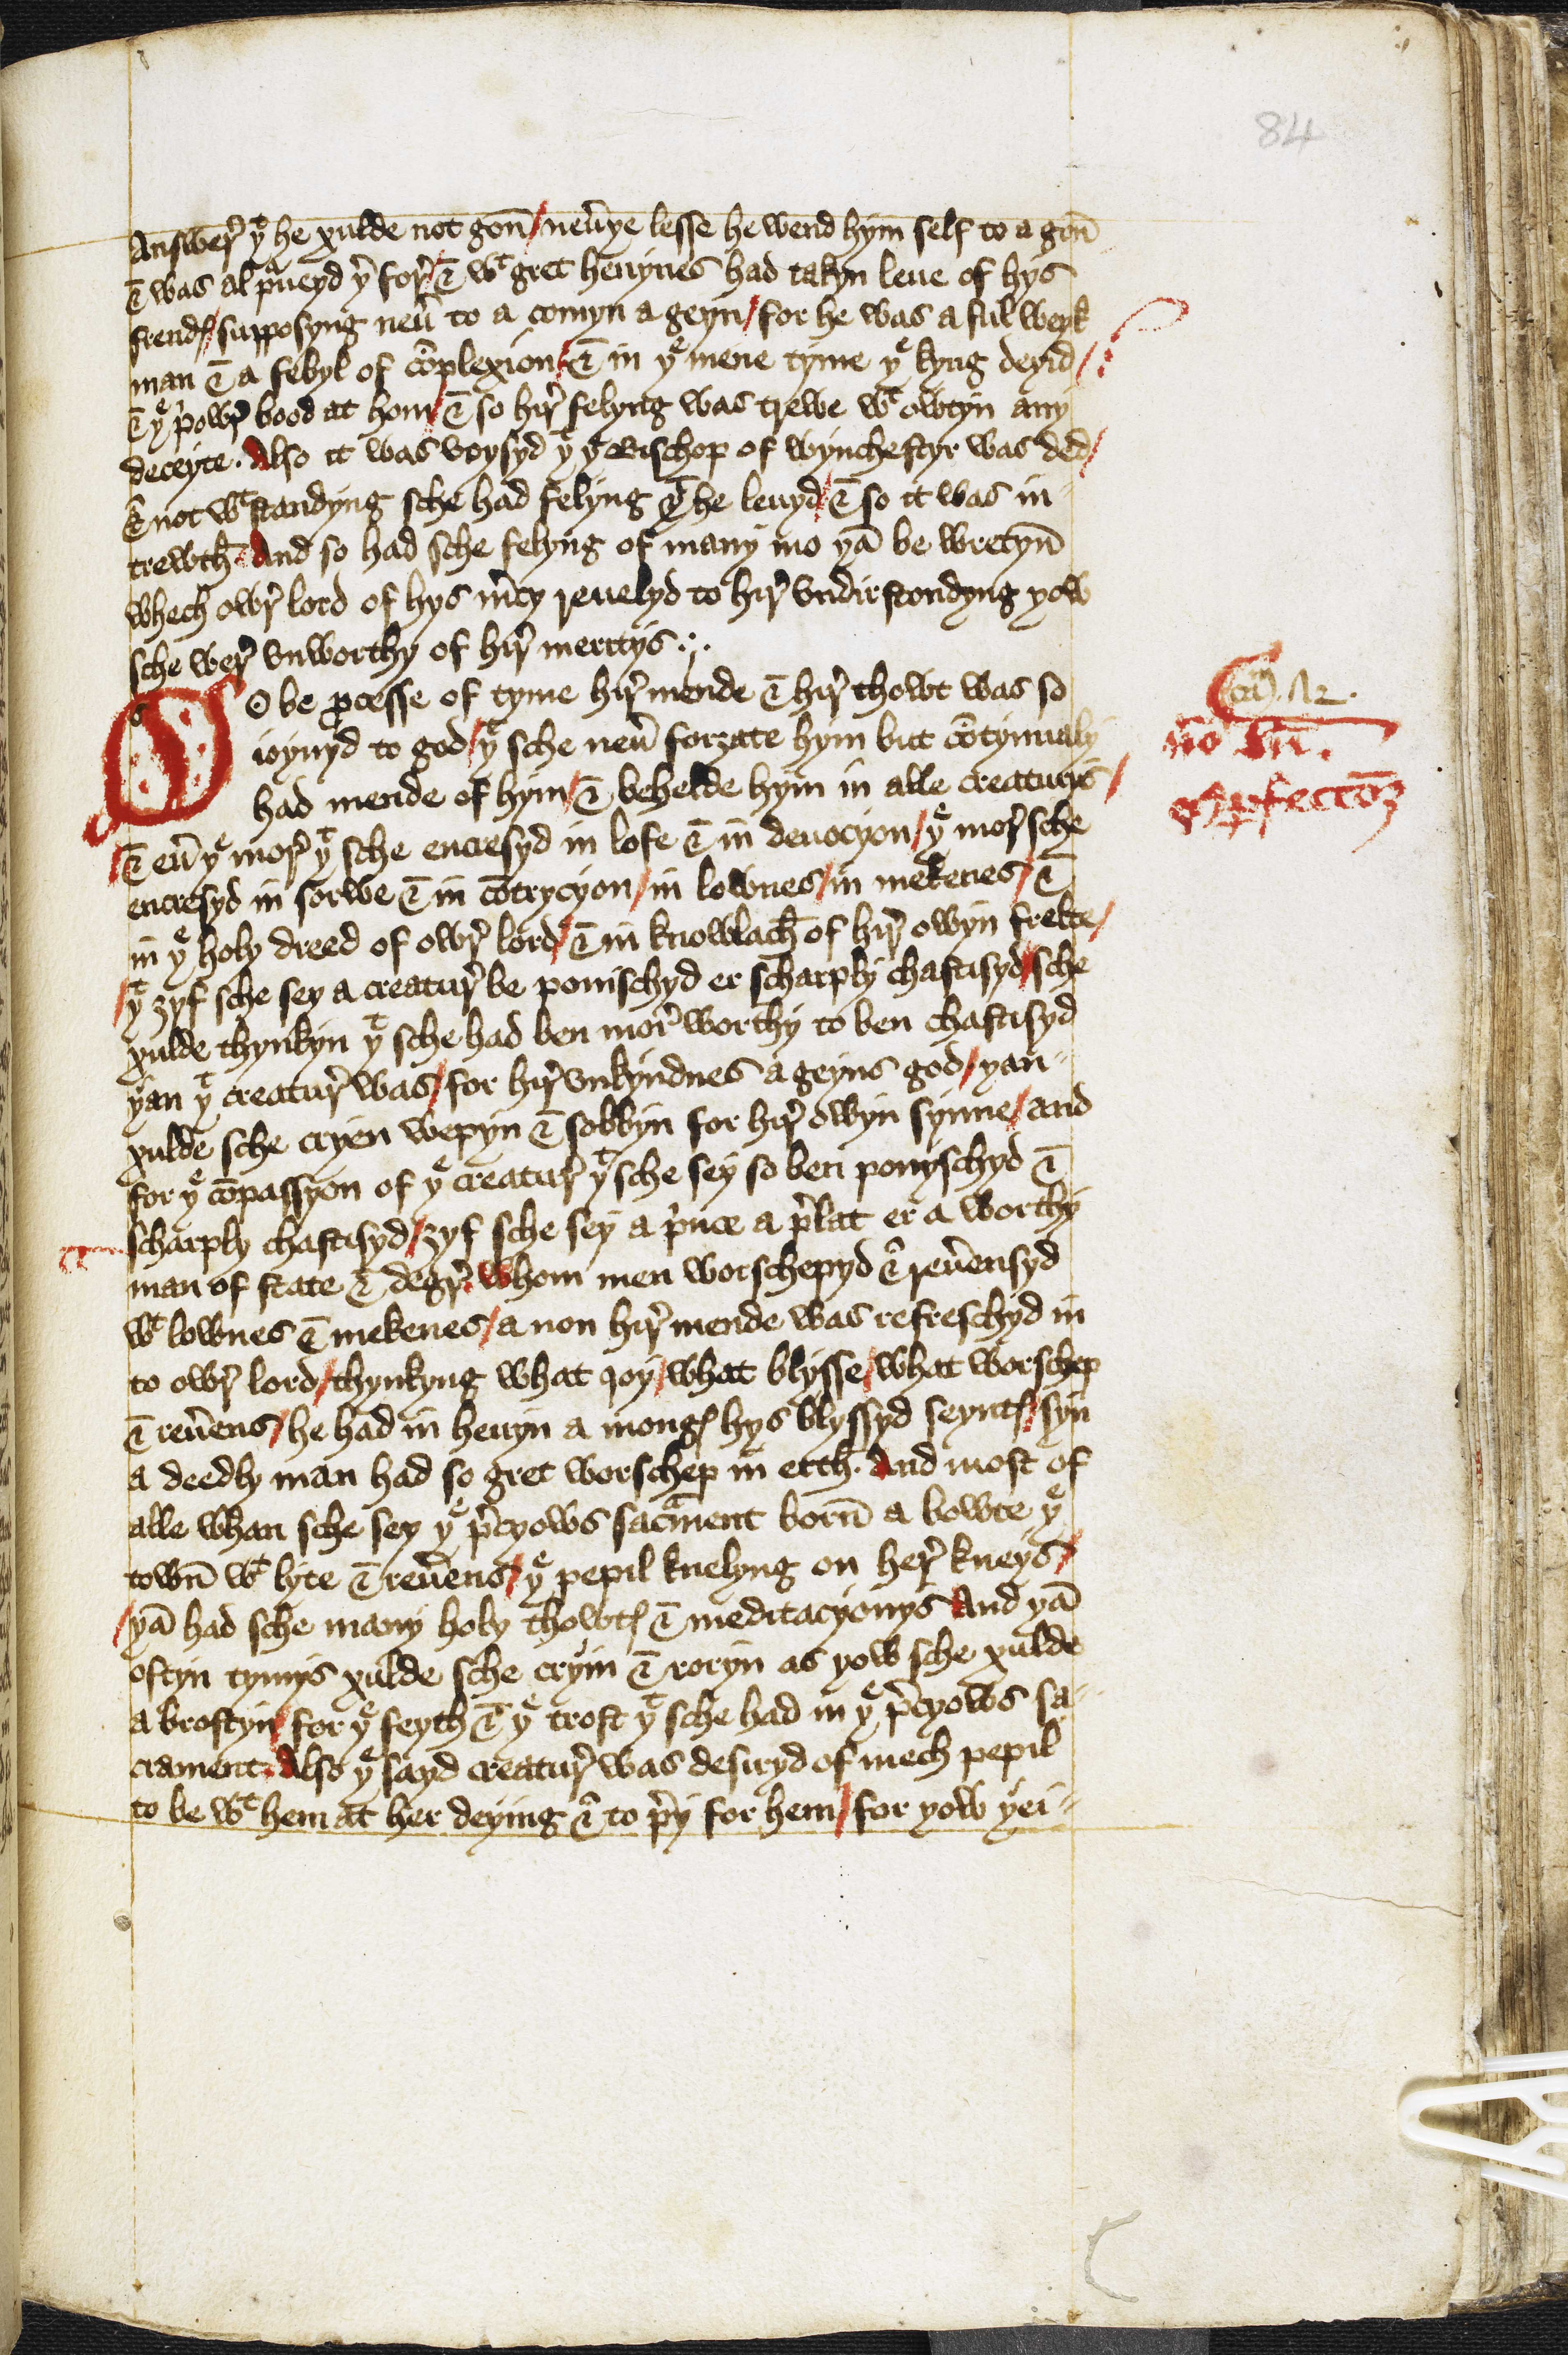 84
Answerꝭ yͭ he xulde not gon̄ / neuͬye lesse he wend hym self to a gon̄
& was al puͬeyd yͬ forꝭ / & wͭ gret heuynes had takyn leue of hys
frendꝭ / supposyng neuͬ to a comyn a geyn / for he was a ful weyk
man & a febyl of cōplexion / & in yͤ mene tyme yͤ kyng deyid /
& yͤ pͥowrꝭ bood at hom / & so hirꝭ felyng was trewe wͭ owtyn any
deceyte. Also it was voysyd yͭ yͤ Bischop of wynchestyr was ded /
& not wͭ standyng sche had felyng yͭ he leuyd / & so it was in
trewth. And so had sche felyng of many mo yā be wretyn̄
whech owrꝭ lord of hys mͬcy reuelyd to hirꝭ vndirstondyng yow
sche werꝭ vnworthy of hirꝭ meritys .;.
So be ꝓcesse of tyme hirꝭ mende & hirꝭ thowt was so
ioynyd to god / yͭ sche neuͬ forȝate hym but cōtynualy
had mende of hym / & behelde hym in alle creaturys /
& euͬ yͤ morꝭ yͭ sche encresyd in lofe & in deuocyon / yͤ morꝭ sche
encresyd in sorwe & in cōtrycyon / in lownes / in mekenes / &
in yͤ holy dreed of owrꝭ lord / & in knowlach of hirꝭ owyn frelte /
yͭ ȝyf sche sey a creaturꝭ be ponischyd er scharply chastisyd / sche
xulde thynkyn yͭ sche had ben morꝭ worthy to ben chastisyd
yan yͭ creaturꝭ was / for hirꝭ vnkyndnes a geyns god / yan
xulde sche cryen wepyn & sobbyn for hirꝭ owyn synne / and
for yͤ cōpassyon of yͤ creaturꝭ yͭ sche sey so ben ponyschyd &
scharply chastisyd / ȝyf sche sey a pͥnce a pͬlat er a worthy
man of state & degrꝭ whom men worschepyd & reuͬensyd
wͭ lownes & mekenes / a non hirꝭ mende was refreschyd in
to owrꝭ lord / thynkyng what joy / what blysse / what worschep
& reuͬens / he had in heuyn a mongꝭ hys blyssyd seyntꝭ / syn
a deedly man had so gret worschep in erth. And most of
alle whan sche sey yͤ pͬcyows sacͣment born̄ a bowte yͤ
town̄ wͭ lyte & reuͬens / yͤ pepil knelyng on herꝭ kneys /
yā had sche many holy thowtꝭ & meditacyonys And yā
oftyn tymys xulde sche cryin & roryn as yow sche xulde
a brostyn / for yͤ feyth & yͤ trost yͭ sche had in yͤ pͬcyows sa
crament. Also yͤ sayd creaturꝭ was desiryd of mech pepil
to be wͭ hem at her deying & to pͬy for hem / for yow yei